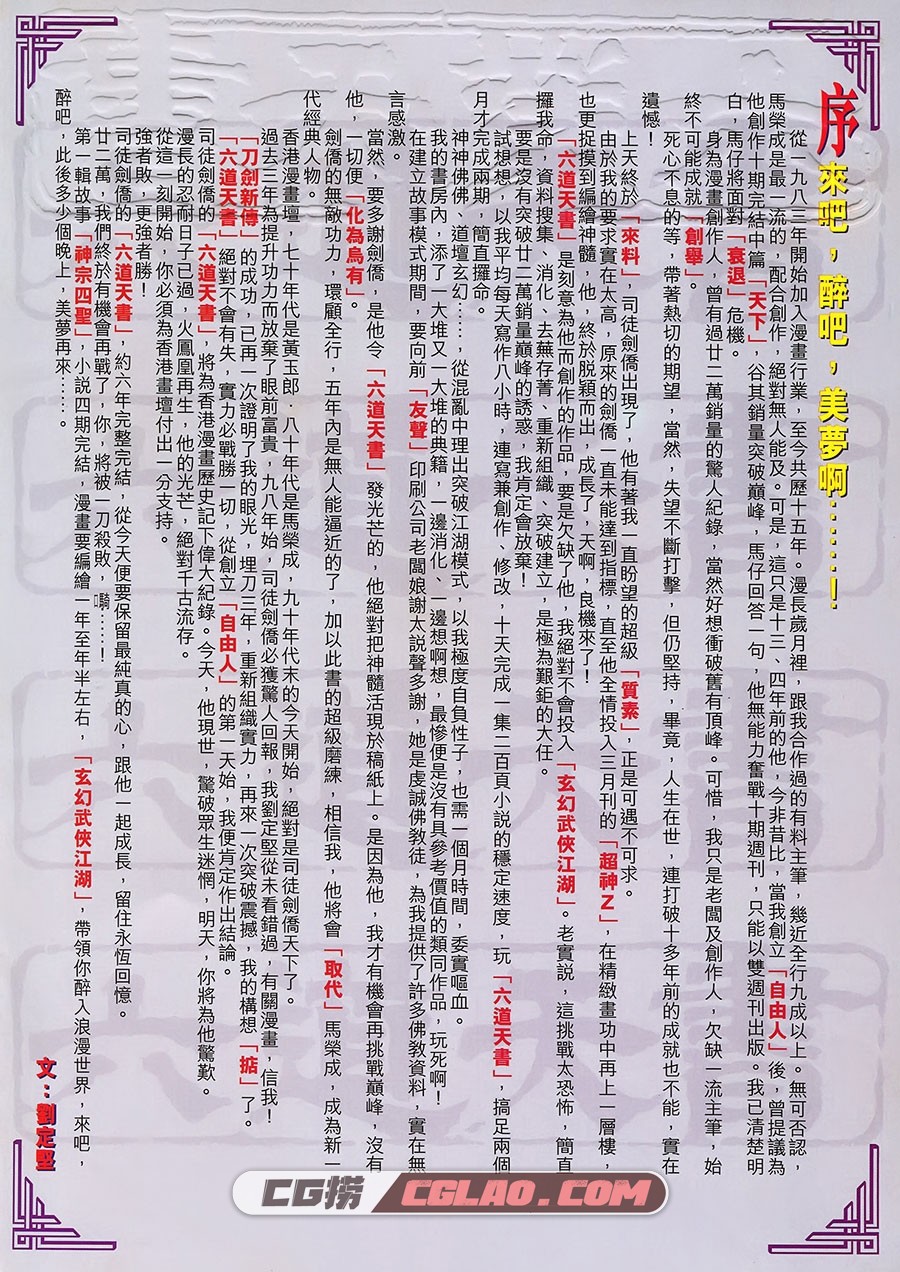 序 來吧，醉吧，美夢啊……！
從一九八三年開始加入漫畫行業，至今共歷十五年。漫長歲月裡，跟我合作過的有料主筆，幾近全行九成以上。無可否認，
馬榮成是最一流的，配合創作，絕對無人能及。可是，這只是十三、四年前的他，今非昔比，當我創立「自由人」後，曾提議為
他創作十期完結中篇「天下」，谷其銷量突破巔峰，馬仔回答一句，他無能力奮戰十期週刊，只能以雙週刊出版。我已清楚明
白，馬仔將面對「衰退」危機。
身為漫畫創作人，曾有過廿二萬銷量的驚人紀錄，當然好想衝破舊有頂峰。可惜，我只是老闆及創作人，欠缺一流主筆，始
終不可能成就「創舉」。
死心不息的等，帶著熱切的期望，當然，失望不斷打擊，但仍堅持，畢竟，人生在世，連打破十多年前的成就也不能，實在
遺憾！
上天終於「來料」，司徒劍僑出現了，他有著我一直盼望的超級「質素」，正是可遇不可求。
由於我的要求實在太高，原來的劍僑一直未能達到指標，直至他全情投入三月刊的「超神Z」，在精緻畫功中再上一層樓，
也更捉摸到編繪神髓，他，終於脫穎而出，成長了，天啊，良機來了！
「六道天書」是刻意為他而創作的作品，要是欠缺了他，我絕對不會投入「玄幻武俠江湖」。老實說，這挑戰太恐怖，簡直
攞我命，資料搜集、消化、去蕪存菁、重新組織、突破建立，是極為艱鉅的大任。
要是沒有突破廿二萬銷量巔峰的誘惑，我肯定會放棄！
試想想，以我平均每天寫作八小時，連寫兼創作、修改，十天完成一集二百頁小說的穩定速度，玩「六道天書」，搞足兩個
月才完成兩期，簡直攞命。
神神佛佛、道壇玄幻……，從混亂中理出突破江湖模式，以我極度自負性子，也需一個月時間，委實嘔血。
我的書房內，添了一大堆又一大堆的典籍，一邊消化、一邊想啊想，最慘便是沒有具參考價值的類同作品，玩死啊！
在建立故事模式期間，要向前「友聲」印刷公司老闆娘謝太說聲多謝，她是虔誠佛教徒，為我提供了許多佛教資料，實在無
言感激。
當然，要多謝劍僑，是他令「六道天書」發光芒的，他絕對把神髓活現於稿紙上。是因為他，我才有機會再挑戰巔峰，沒有
他，一切便「化為烏有」。
劍僑的無敵功力，環顧全行，五年內是無人能逼近的了，加以此書的超級磨練，相信我，他將會「取代」馬榮成，成為新一
代經典人物。
香港漫畫壇，七十年代是黃玉郎．八十年代是馬榮成，九十年代末的今天開始，絕對是司徒劍僑天下了。
過去三年為提升功力而放棄了眼前富貴，九八年始，司徒劍僑必獲驚人回報，我劉定堅從未看錯過，有關漫畫，信我！
「刀劍新傳」的成功，已再一次證明了我的眼光，埋刀三年，重新組織實力，再來一次突破震撼，我的構想「掂」了。
「六道天書」絕對不會有失，實力必戰勝一切，從創立「自由人」的第一天始，我便肯定作出結論。
司徒劍僑的「六道天書」，將為香港漫畫歷史記下偉大紀錄。今天，他現世，驚破眾生迷惘，明天，你將為他驚歎。
漫長的忍耐日子已過，火鳳凰再生，他的光芒，絕對千古流存。
從這一刻開始，你必須為香港畫壇付出一分支持。
強者敗，更強者勝！
司徒劍僑的「六道天書」，約六年完整完結，從今天便要保留最純真的心，跟他一起成長，留住永恆回憶。
廿二萬，我們終於有機會再戰了，你，將被一刀殺敗，嘢……！
第一輯故事「神宗四聖」，小說四期完結，漫畫要編繪一年至年半左右，「玄幻武俠江湖」，帶領你醉入浪漫世界，來吧，
醉吧，此後多少個晚上，美夢再來……。
文：劉定堅
CG捞 CGLAO.COM